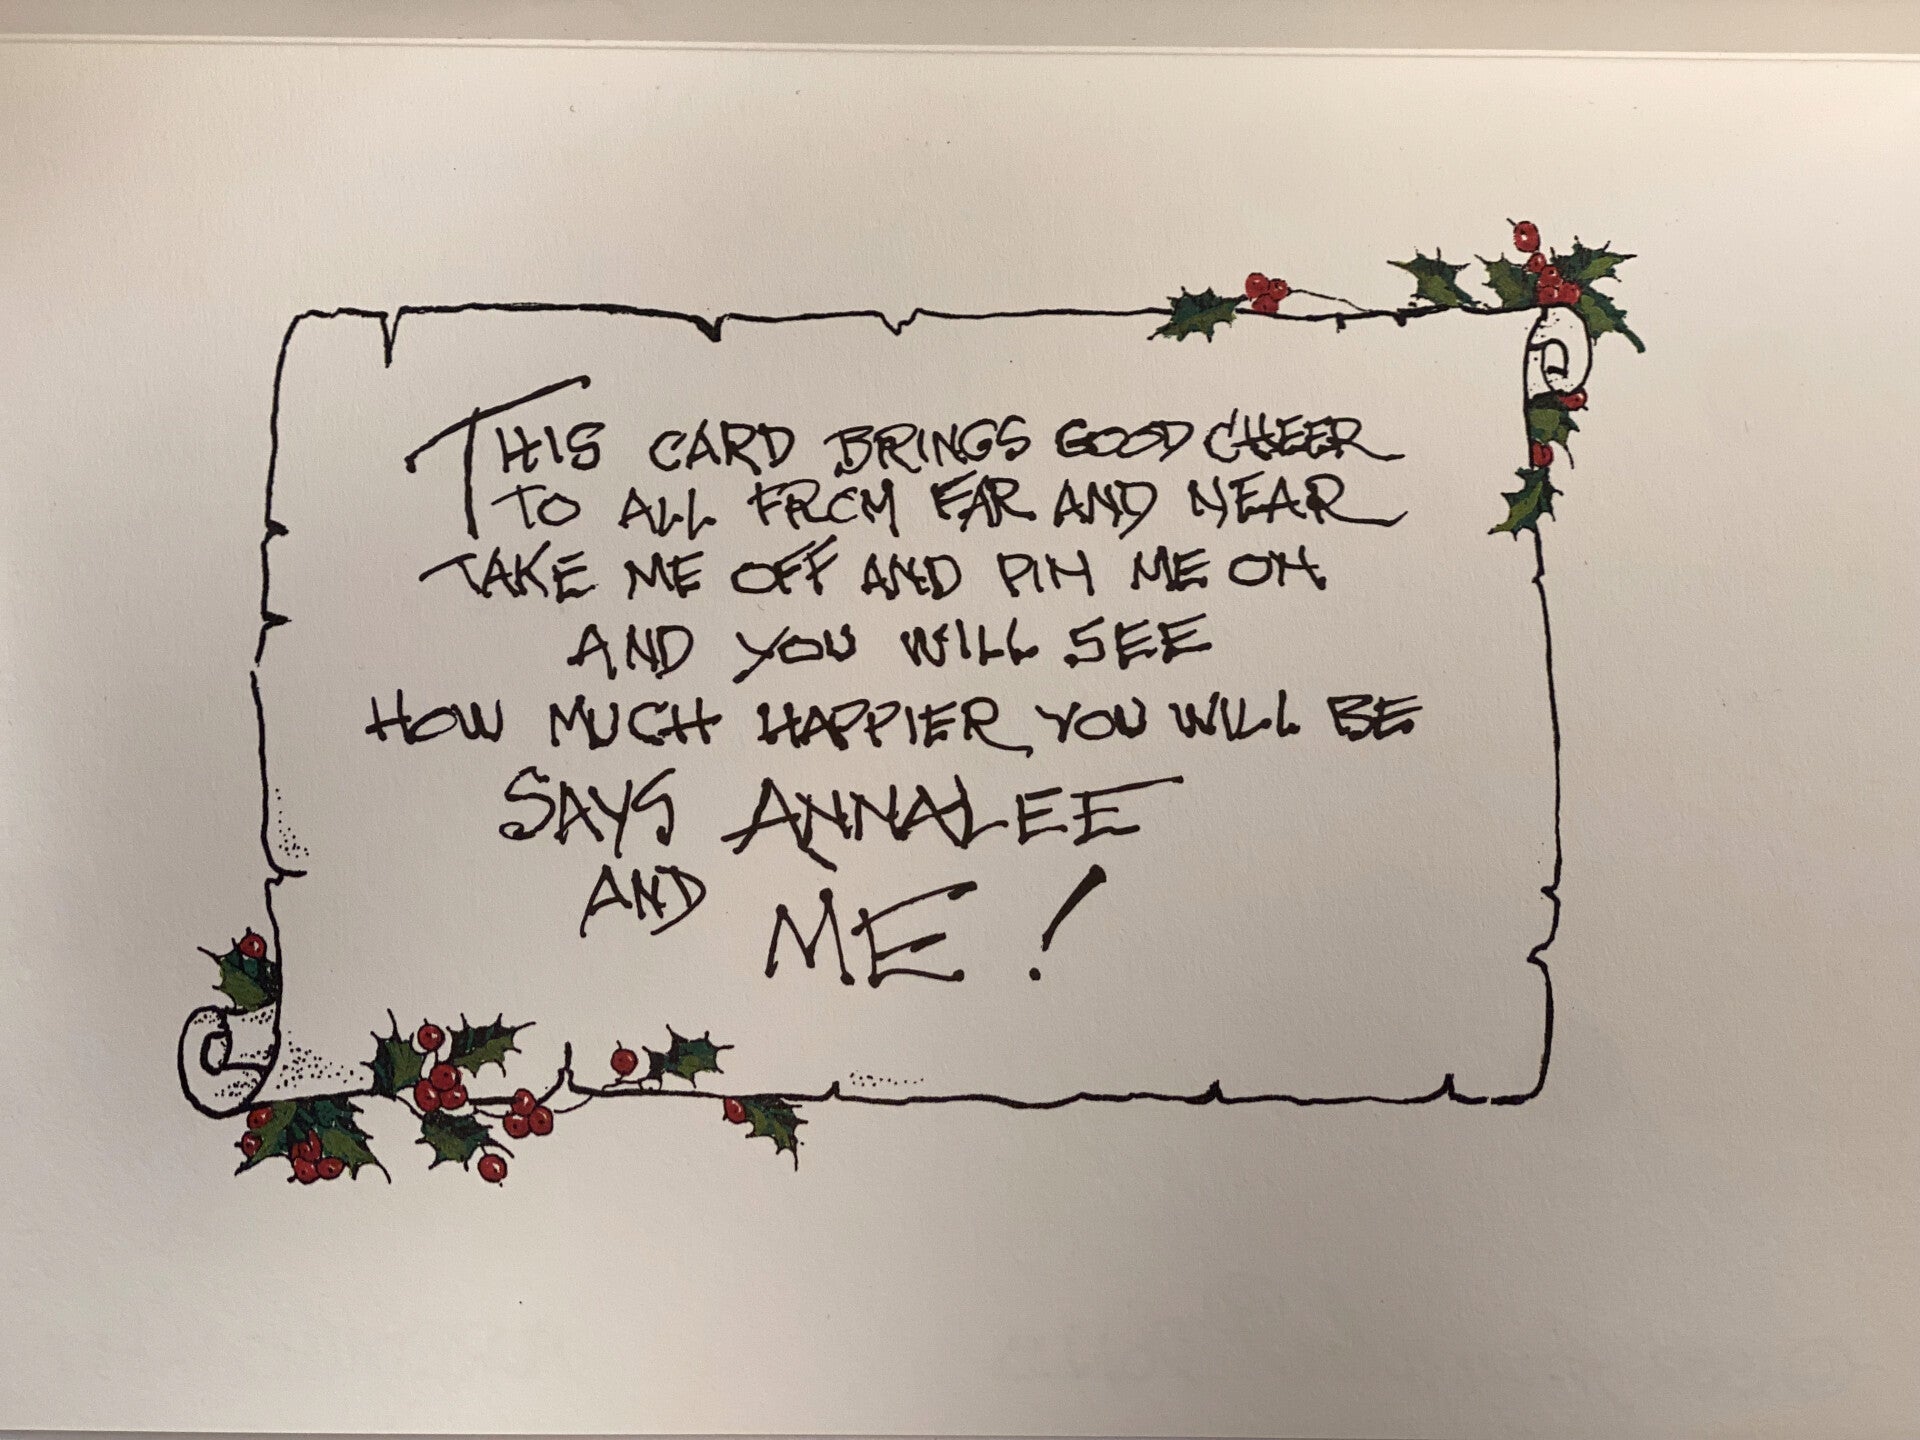 THIS CARD BRINGS GOOD CHEER
TO ALL FROM FAR AND NEAR
TAKE ME OFF AND PIN ME ON
AND YOU WILL SEE
HOW MUCH HAPPIER YOU WILL BE
SAYS ANNALEE
AND ME!